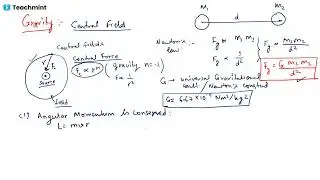 Teachmint
Gravity :- Central Field
Central fields
Central Force
F₍ ∝ rⁿ (gravity, n=-2)
F ∝ 1/r²
Source
field
Newton's law
M₁ M₂
d
Fg ∝ M₁ M₂
Fg ∝ 1/d²
Fg ∝ M₁M₂/d²
Fg = G M₁ M₂/d²
G → universal Gravitational const / Newton's constant
G = 6.67×10 Nm²/kg²
(1) Angular Momentum is Conserved:
L = mvr